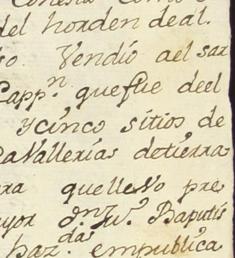 del horden deal.
so. Vendió ael sar
Cappn. quefue deel
ycinco sitios de
CaVallerias detierra
ra quelleVo pre
ayor Baptis
haz. empublica